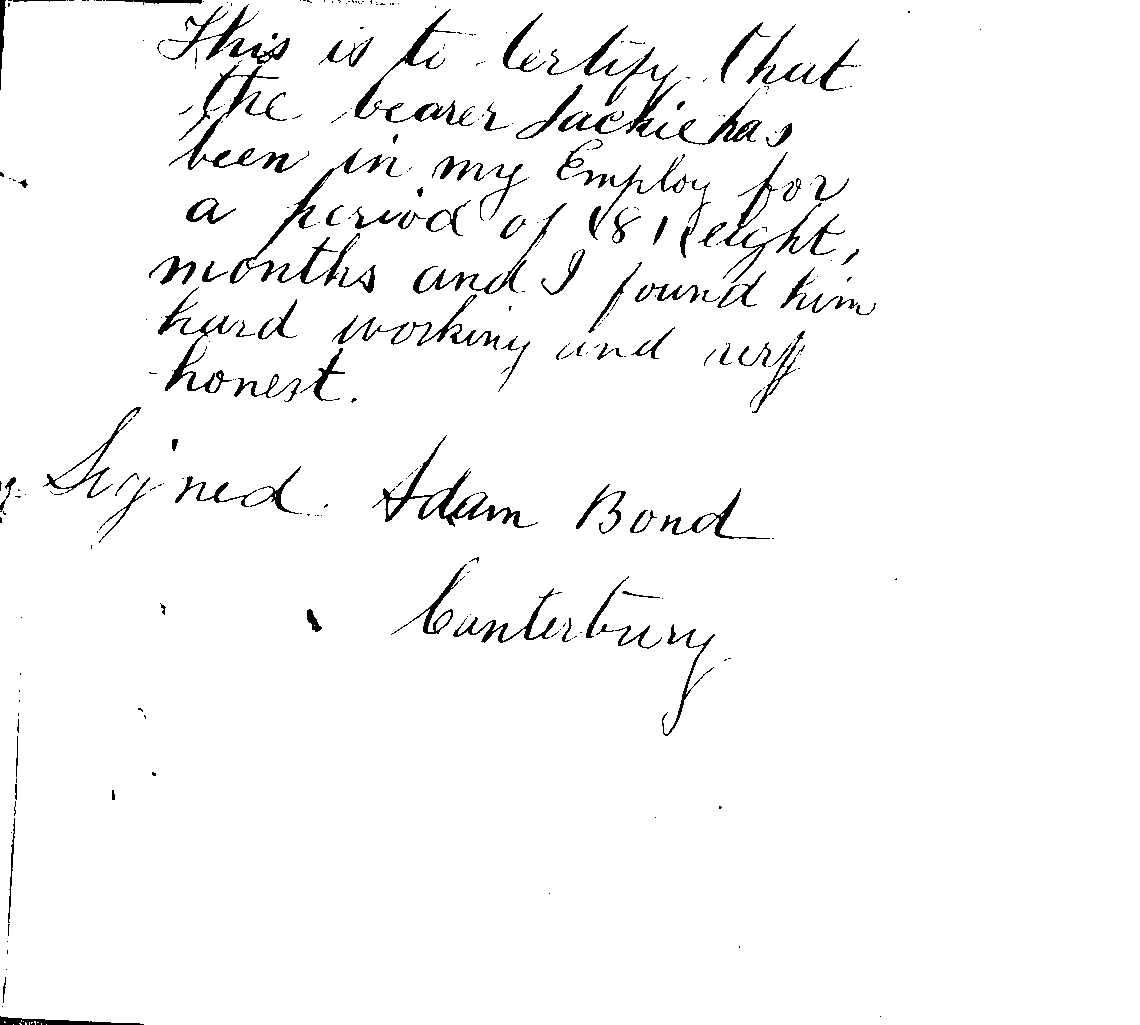 This is to Certify that
the bearer Jackie has
been in my Employ for
a period of (8) eight,
months and I found him
hard working and very
honest.
Signed. Adam Bond
Canterbury